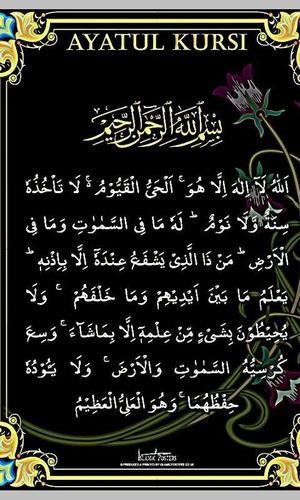 AYATUL KURSI
بِسْمِ اللَّهِ الرَّحْمَٰنِ الرَّحِيمِ
اَللّٰهُ لَآ اِلٰهَ اِلَّا هُوَ ۚ اَلْحَيُّ الْقَيُّوْمُ ۚ لَا تَاْخُذُهٗ
سِنَةٌ وَّلَا نَوْمٌ ؕ لَهٗ مَا فِى السَّمٰوٰتِ وَمَا فِى
الْاَرْضِ ؕ مَنْ ذَا الَّذِىْ يَشْفَعُ عِنْدَهٗٓ اِلَّا بِاِذْنِهٖ ؕ
يَعْلَمُ مَا بَيْنَ اَيْدِيْهِمْ وَمَا خَلْفَهُمْ ۚ وَلَا
يُحِيْطُوْنَ بِشَىْءٍ مِّنْ عِلْمِهٖٓ اِلَّا بِمَاشَآءَ ۚ وَسِعَ
كُرْسِيُّهُ السَّمٰوٰتِ وَالْاَرْضَ ۚ وَلَا يَـُٔوْدُهٗ
حِفْظُهُمَا ۚ وَهُوَ الْعَلِىُّ الْعَظِيْمُ
ISLAMIC POSTERS
© PRODUCED & PRINTED BY ISLAMICPOSTERS.CO.UK